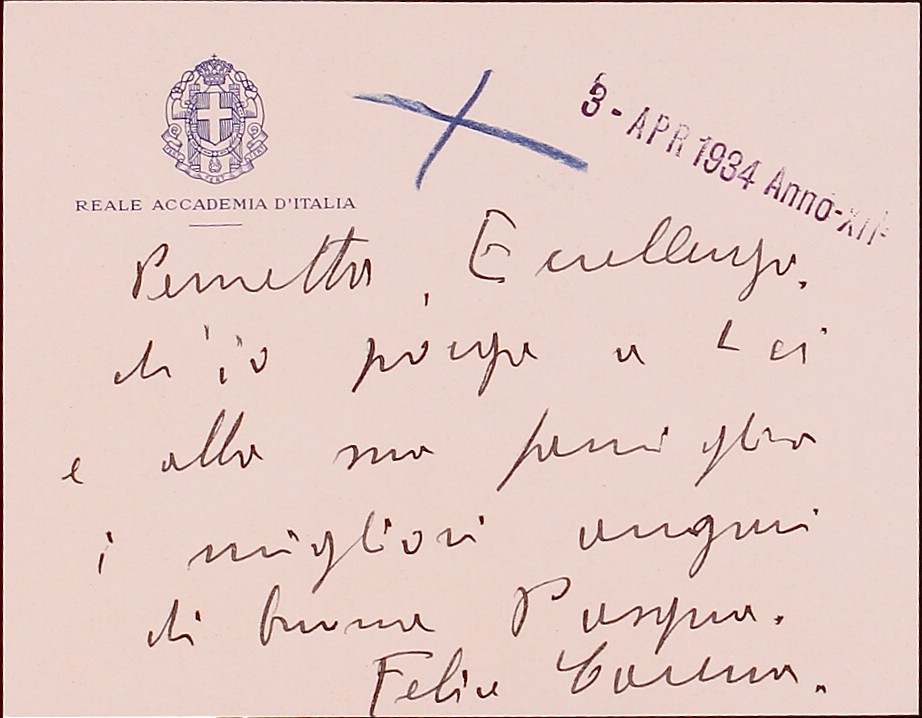 REALE ACCADEMIA D'ITALIA
3 - APR 1934 Anno-XII-
Permetta, Eccellenza,
ch'io porga a Lei
e alla sua famiglia
i migliori auguri
di buona Pasqua.
Felice Carena.